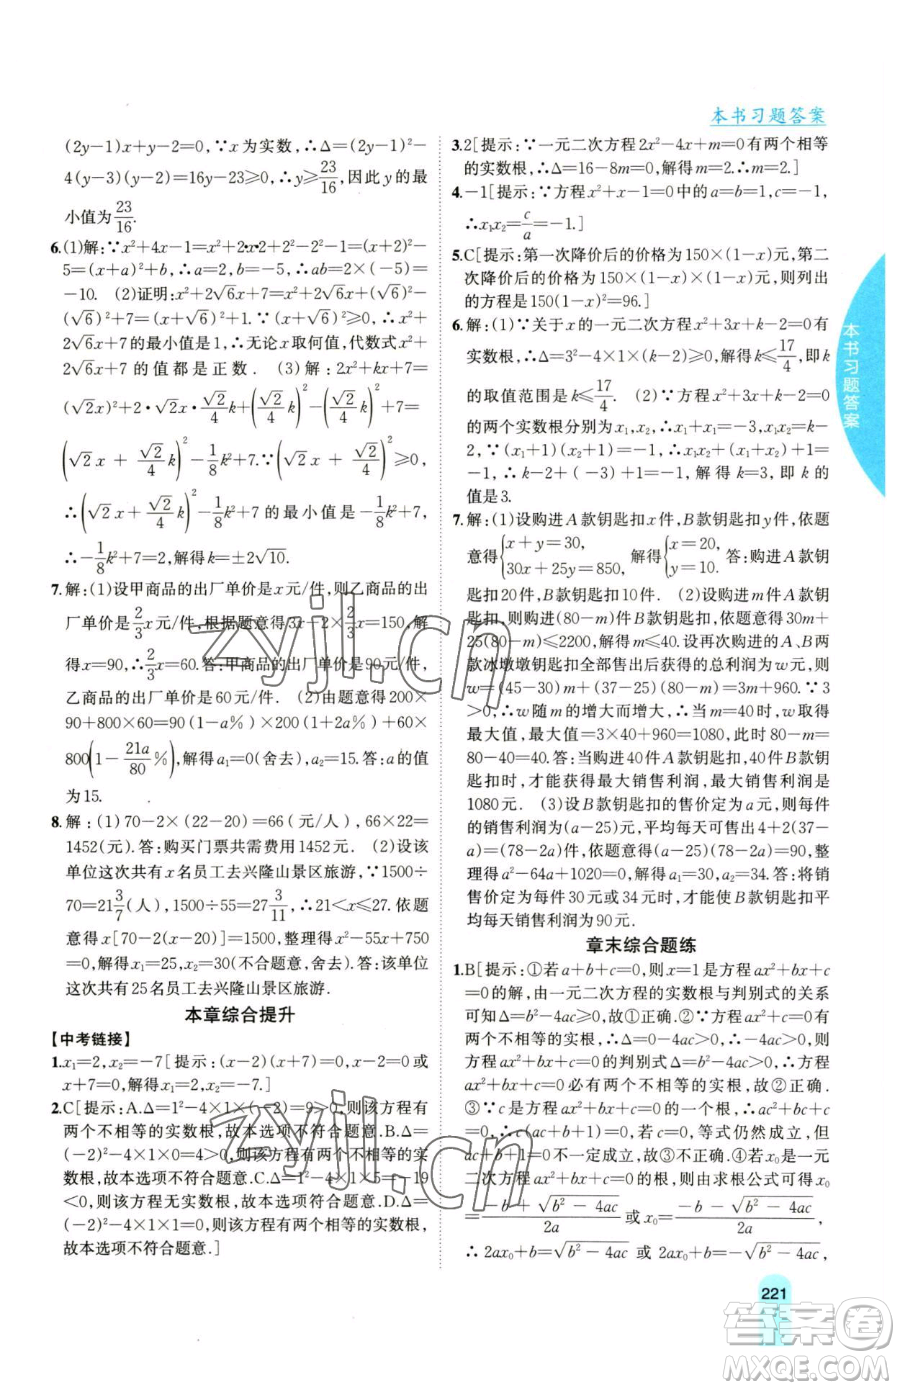 本书习题答案
(2y-1)x+y=0,∵x为实数,∴Δ=(2y-1)²-
4(y-3)(y-2)=16y-23≥0,∴y≥23/16,因此y的最
小值为23/16.
6.(1)解:∵x²+4x-1=x²+2·x·2+2²-2²-1=(x+2)²-
5=(x+a)²+b,∴a=2,b=-5,∴ab=2×(-5)=
-10. (2)证明:x²+2√6x+7=x²+2√6x+(√6)²-
(√6)²+7=(x+√6)²+1.∵(x+√6)²≥0,∴x²+
2√6x+7的最小值是1,∴无论x取何值,代数式x²+
2√6x+7的值都是正数. (3)解:2x²+kx+7=
(√2x)²+2·√2x·√2/4k+(√2/4k)²-(√2/4k)²+7=
(√2x+√2/4k)²-1/8k²+7.∵(√2x+√2/4k)²≥0,
∴(√2x+√2/4k)²-1/8k²+7的最小值是-1/8k²+7,
∴-1/8k²+7=2,解得k=±2√10.
7.解:(1)设甲商品的出厂单价是x元/件,则乙商品的出
厂单价是2/3x元/件,根据题意得3x-2×2/3x=150,解
得x=90,∴2/3x=60.答:甲商品的出厂单价是90元/件,
乙商品的出厂单价是60元/件. (2)由题意得200×
90+800×60=90(1-a%)×200(1+2a%)+60×
800(1-21a/80%),解得a₁=0(舍去),a₂=15.答:a的值
为15.
8.解:(1)70-2×(22-20)=66(元/人),66×22=
1452(元).答:购买门票共需费用1452元. (2)设该
单位这次共有x名员工去兴隆山景区旅游,∵1500÷
70=21 3/7(人),1500÷55=27 3/11,∴21<x≤27.依题
意得x[70-2(x-20)]=1500,整理得x²-55x+750=
0,解得x₁=25,x₂=30(不合题意,舍去).答:该单位
这次共有25名员工去兴隆山景区旅游.
本章综合提升
【中考链接】
1.x₁=2,x₂=-7[提示:(x-2)(x+7)=0,x-2=0或
x+7=0,解得x₁=2,x₂=-7.]
2.C[提示:A.Δ=1²-4×1×(-2)=9>0,则该方程有
两个不相等的实数根,故本选项不符合题意.B.Δ=
(-2)²-4×1×0=4>0,则该方程有两个不相等的实
数根,故本选项不符合题意.C.Δ=1²-4×1×5=-19
<0,则该方程无实数根,故本选项符合题意.D.Δ=
(-2)²-4×1×1=0,则该方程有两个相等的实数根,
故本选项不符合题意.]
3.2[提示:∵一元二次方程2x²-4x+m=0有两个相等
的实数根,∴Δ=16-8m=0,解得m=2.∴m=2.]
4.-1[提示:∵方程x²+x-1=0中的a=b=1,c=-1,
∴x₁x₂=c/a=-1.]
5.C[提示:第一次降价后的价格为150×(1-x),第二
次降价后的价格为150×(1-x)×(1-x),则列出
的方程是150(1-x)²=96.]
6.解:(1)∵关于x的一元二次方程x²+3x+k-2=0有
实数根,∴Δ=3²-4×1×(k-2)≥0,解得k≤17/4,即k
的取值范围是k≤17/4. (2)∵方程x²+3x+k-2=0
的两个实数根分别为x₁,x₂,∴x₁+x₂=-3,x₁x₂=k-
2.∵(x₁+1)(x₂+1)=-1,∴x₁x₂+(x₁+x₂)+1=
-1,∴k-2+(-3)+1=-1,解得k=3,即k的
值是3.
7.解:(1)设购进A款钥匙扣x件,B款钥匙扣y件,依题
意得{x+y=30, 30x+25y=850, 解得{x=20, y=10. 答:购进A款钥匙
扣20件,B款钥匙扣10件. (2)设购进m件A款钥匙
扣,则购进(80-m)件B款钥匙扣,依题意得30m+
25(80-m)≤2200,解得m≤40.设再次购进的A、B两
款冰墩墩钥匙扣全部售出后获得的总利润为w元,则
w=(45-30)m+(37-25)(80-m)=3m+960.∵3
>0,∴w随m的增大而增大,∴当m=40时,w取得
最大值,最大值=3×40+960=1080,此时80-m=
80-40=40.答:当购进40件A款钥匙扣,40件B款钥
匙扣时,才能获得最大销售利润,最大销售利润是
1080元. (3)设B款钥匙扣的售价定为a元,则每件
的销售利润为(a-25)元,平均每天可售出4+2(37-
a)=(78-2a)件,依题意得(a-25)(78-2a)=90,整理
得a²-64a+1020=0,解得a₁=30,a₂=34.答:将销售
价格定为每件30元或34元时,才能使B款钥匙扣平
均每天销售利润为90元.
章末综合题练
1.B[提示:①若a+b+c=0,则x=1是方程ax²+bx+
c=0的解,由一元二次方程的实数根与判别式的关系
可知Δ=b²-4ac≥0,故①正确.②∵方程ax²+c=0
有两个不相等的实根,∴Δ=0-4ac>0,∴-4ac>0,则
方程ax²+bx+c=0的判别式Δ=b²-4ac>0,∴方程
ax²+bx+c=0必有两个不相等的实根,故②正确.
③∵c是方程ax²+bx+c=0的一个根,∴ac²+bc+
c=0,∴c(ac+b+1)=0,若c=0,等式仍然成立,但
ac+b+1=0不一定成立,故③不正确.④若x₀是一元
二次方程ax²+bx+c=0的根,则由求根公式可得x₀
=(-b+√(b²-4ac))/2a或x₀=(-b-√(b²-4ac))/2a,
∴2ax₀+b=√(b²-4ac)或2ax₀+b=-√(b²-4ac),
本书习题答案
221
zyjl.cn
zyjl.cn
答案圈
MXQE.COM